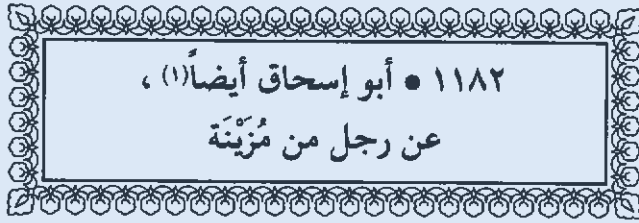 ١١٨٢ • أبو إسحاق أيضاً(١) ،
عن رجل من مُزَيْنَة